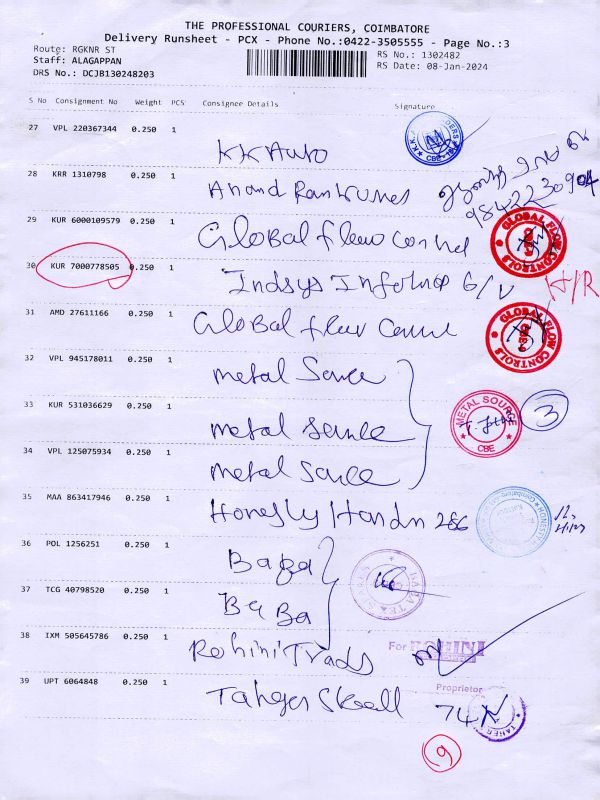 THE PROFESSIONAL COURIERS, COIMBATORE
Delivery Runsheet - PCX - Phone No.:0422-3505555 - Page No.:3
Route: RGKNR ST
Staff: ALAGAPPAN
DRS No.: DCJB130248203
RS No.: 1302482
RS Date: 08-Jan-2024
S No Consignment No Weight PCS Consignee Details Signature
27 VPL 220367344 0.250 1
KK Auto
28 KRR 1310798 0.250 1
Anand
9842230904
29 KUR 6000109579 0.250 1
Global flow
GLOBAL FLOW CONTROLS
30 KUR 7000778505 0.250 1
Indsys
H/R
31 AMD 27611166 0.250 1
Global
GLOBAL FLOW CONTROLS
32 VPL 945178011 0.250 1
metal
33 KUR 531036629 0.250 1
metal
METAL SOURCE CBE
3
34 VPL 125075934 0.250 1
metal
35 MAA 863417946 0.250 1
Honesty
36 POL 1256251 0.250 1
Baba
37 TCG 40798520 0.250 1
BaBa
38 IXM 505645786 0.250 1
Rohini Trads
For ROHINI
Proprietor
39 UPT 6064848 0.250 1
74
9